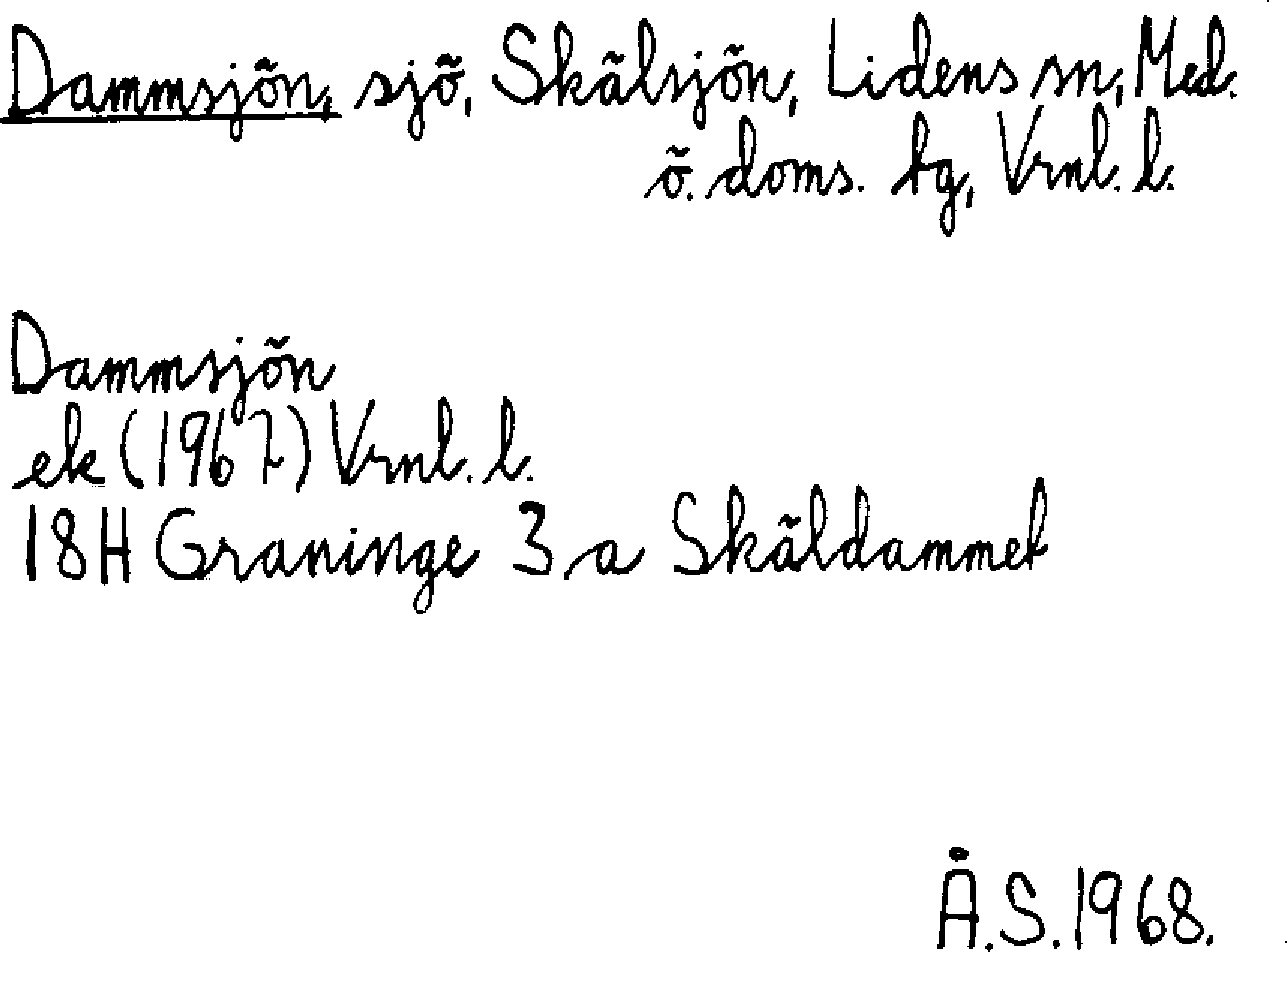 Dammsjön, sjö, Skälsjön, Lidens sn, Med.
ö. doms. tg, Vrnl. l.
Dammsjön
ek (1967) Vrnl. l.
18H Graninge 3 a Skäldammet
Å.S. 1968.